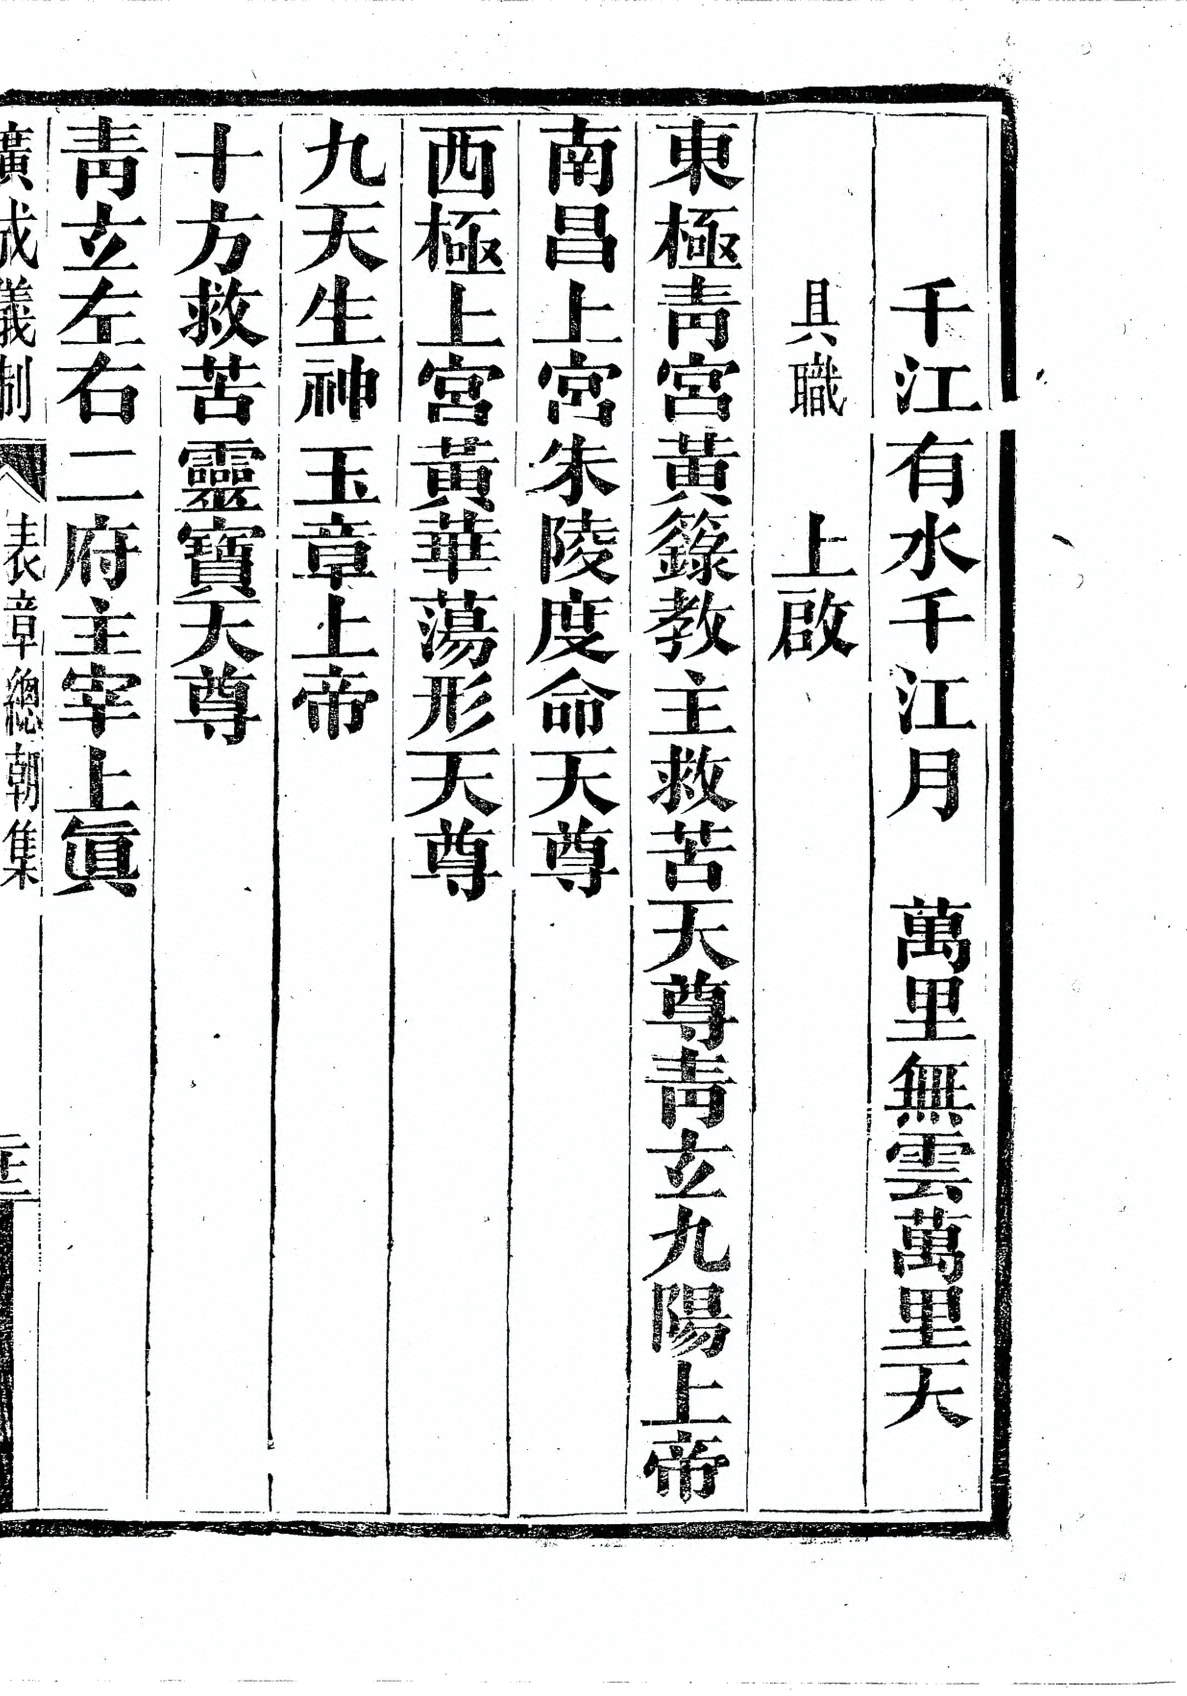 千江有水千江月　萬里無雲萬里天
具職　上啟
東極青宮黃籙教主救苦天尊青玄九陽上帝
南昌上宮朱陵度命天尊
西極上宮黃華蕩形天尊
九天生神玉章上帝
十方救苦靈寶天尊
青玄左右二府主宰上眞
廣成儀制　表章總朝集